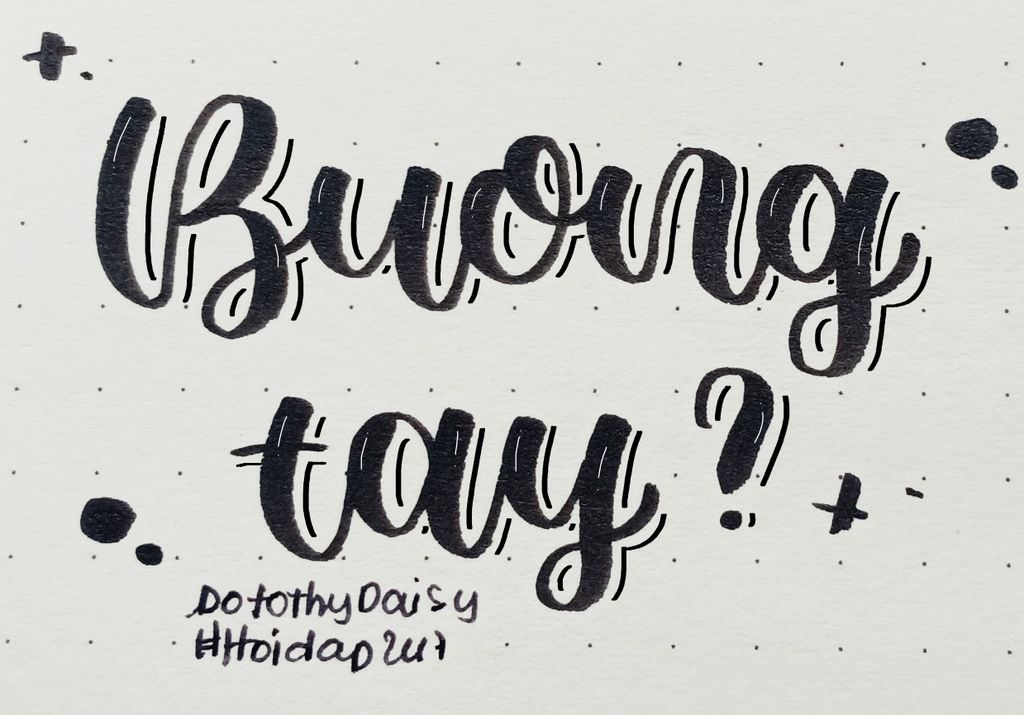 Buong
tay?
DotothyDaisy
#Hoidap247